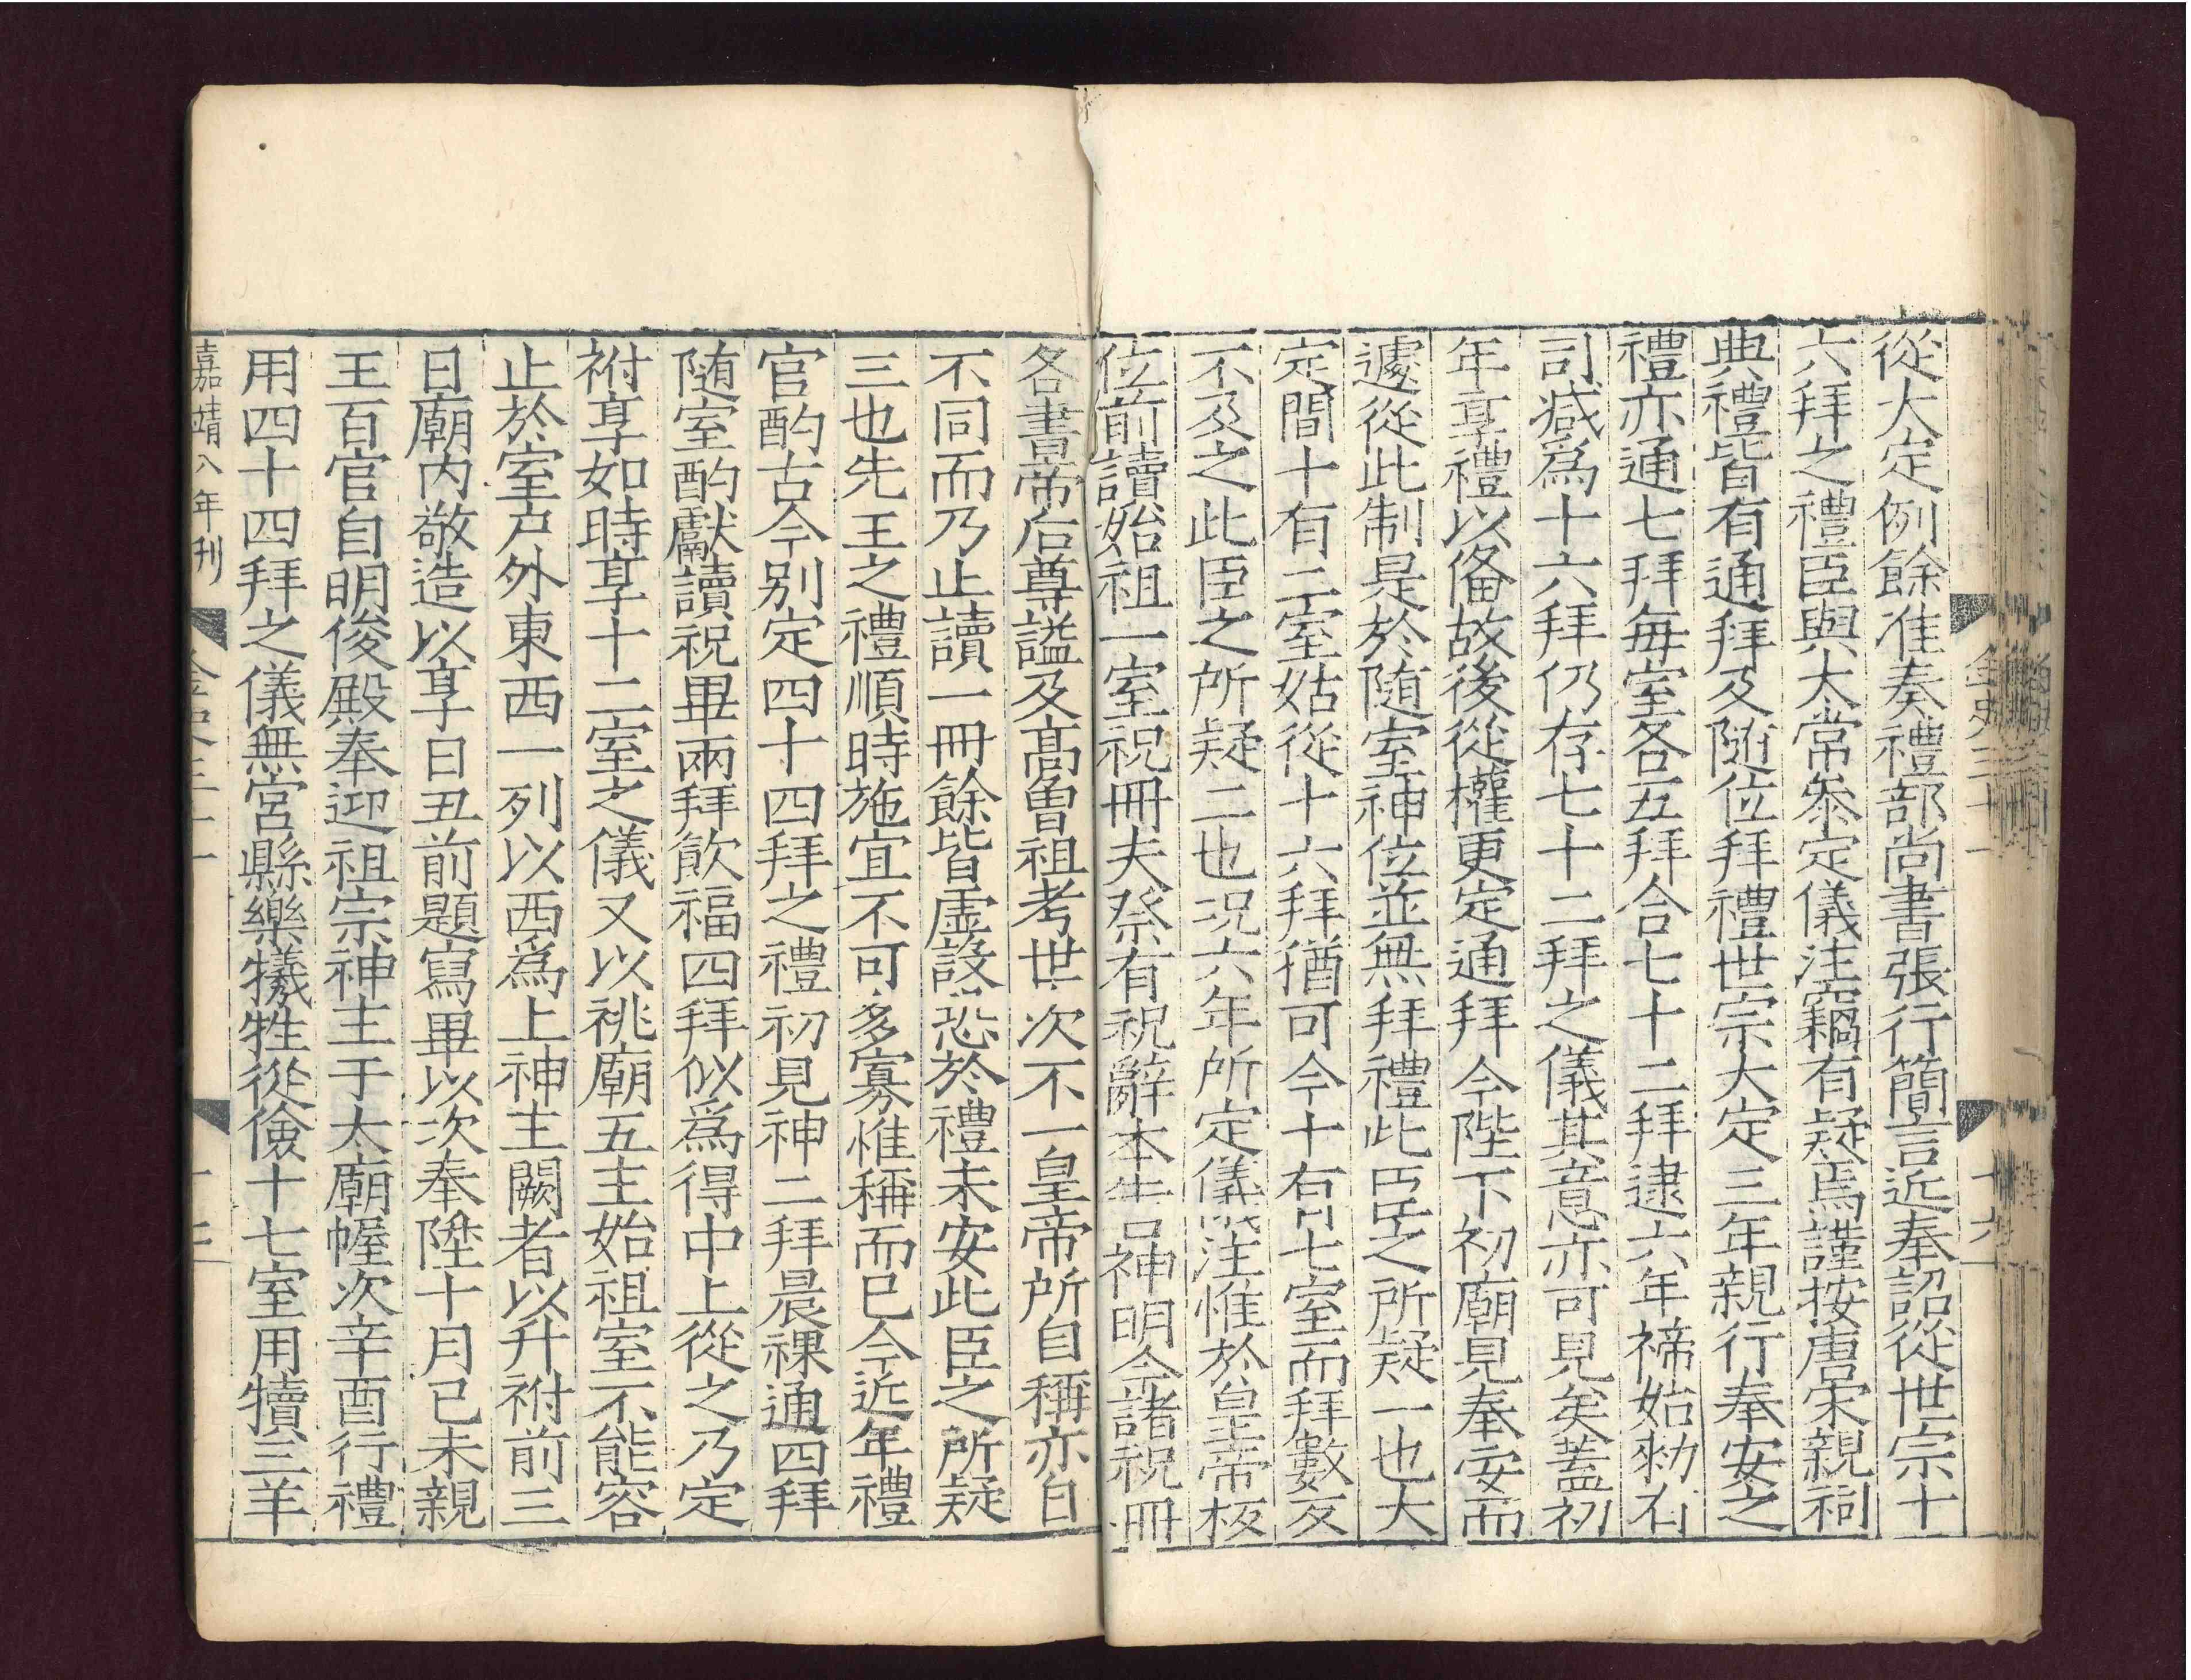 從大定例餘准奏禮部尚書張行簡言近奉詔從世宗十
六拜之禮臣與太常參定儀注竊有疑焉謹按唐宋親祠
典禮皆有通拜及隨位拜禮世宗大定三年親行奉安之
禮亦通七拜每室各五拜合七十二拜逮六年禘始勑有
司减爲十六拜仍存七十二拜之儀其意亦可見矣蓋初
年享禮以備故後從權更定通拜今陛下初廟見奉安而
遽從此制是於隨室神位並無拜禮此臣之所疑一也大
定間十有二室姑從十六拜猶可今十有七室而拜數反
不及之此臣之所疑二也况六年所定儀注惟於皇帝板
位前讀始祖一室祝冊夫祭有祝辭本告神明今諸祝冊
各書帝后尊謚及高曾祖考世次不一皇帝所自稱亦自
不同而乃止讀一冊餘皆虚設恐於禮未安此臣之所疑
三也先王之禮順時施宜不可多寡惟稱而已今近年禮
官酌古今别定四十四拜之禮初見神二拜晨祼通四拜
隨室酌獻讀祝畢兩拜飲福四拜似爲得中上從之乃定
祔享如時享十二室之儀又以祧廟五主始祖室不能容
止於室户外東西一列以西爲上神主闕者以升祔前三
日廟内敬造以享日丑前題寫畢以次奉陞十月己未親
王百官自明俊殿奉迎祖宗神主于太廟幄次辛酉行禮
用四十四拜之儀無宫縣樂犧牲從儉十七室用犢三羊
嘉靖八年刊
金史三十一